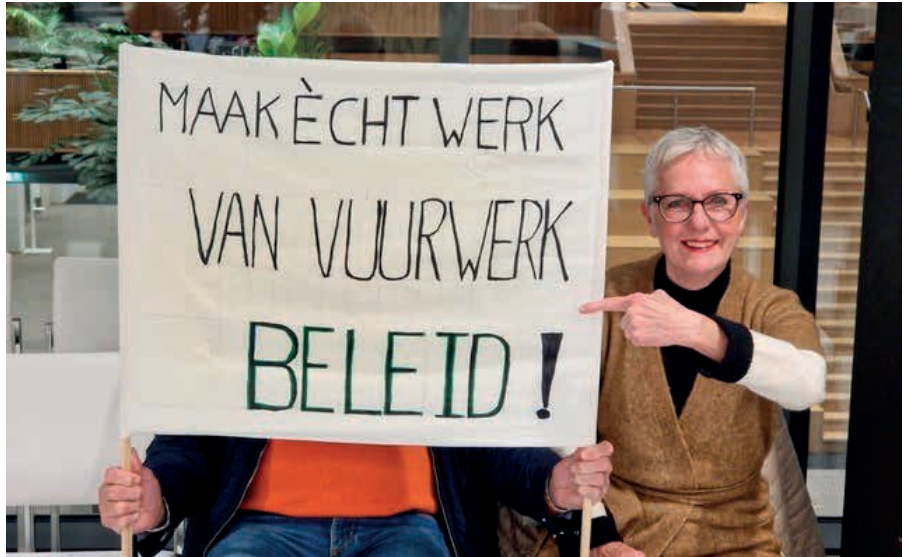 MAAK ÈCHT WERK
VAN VUURWERK
BELEID!